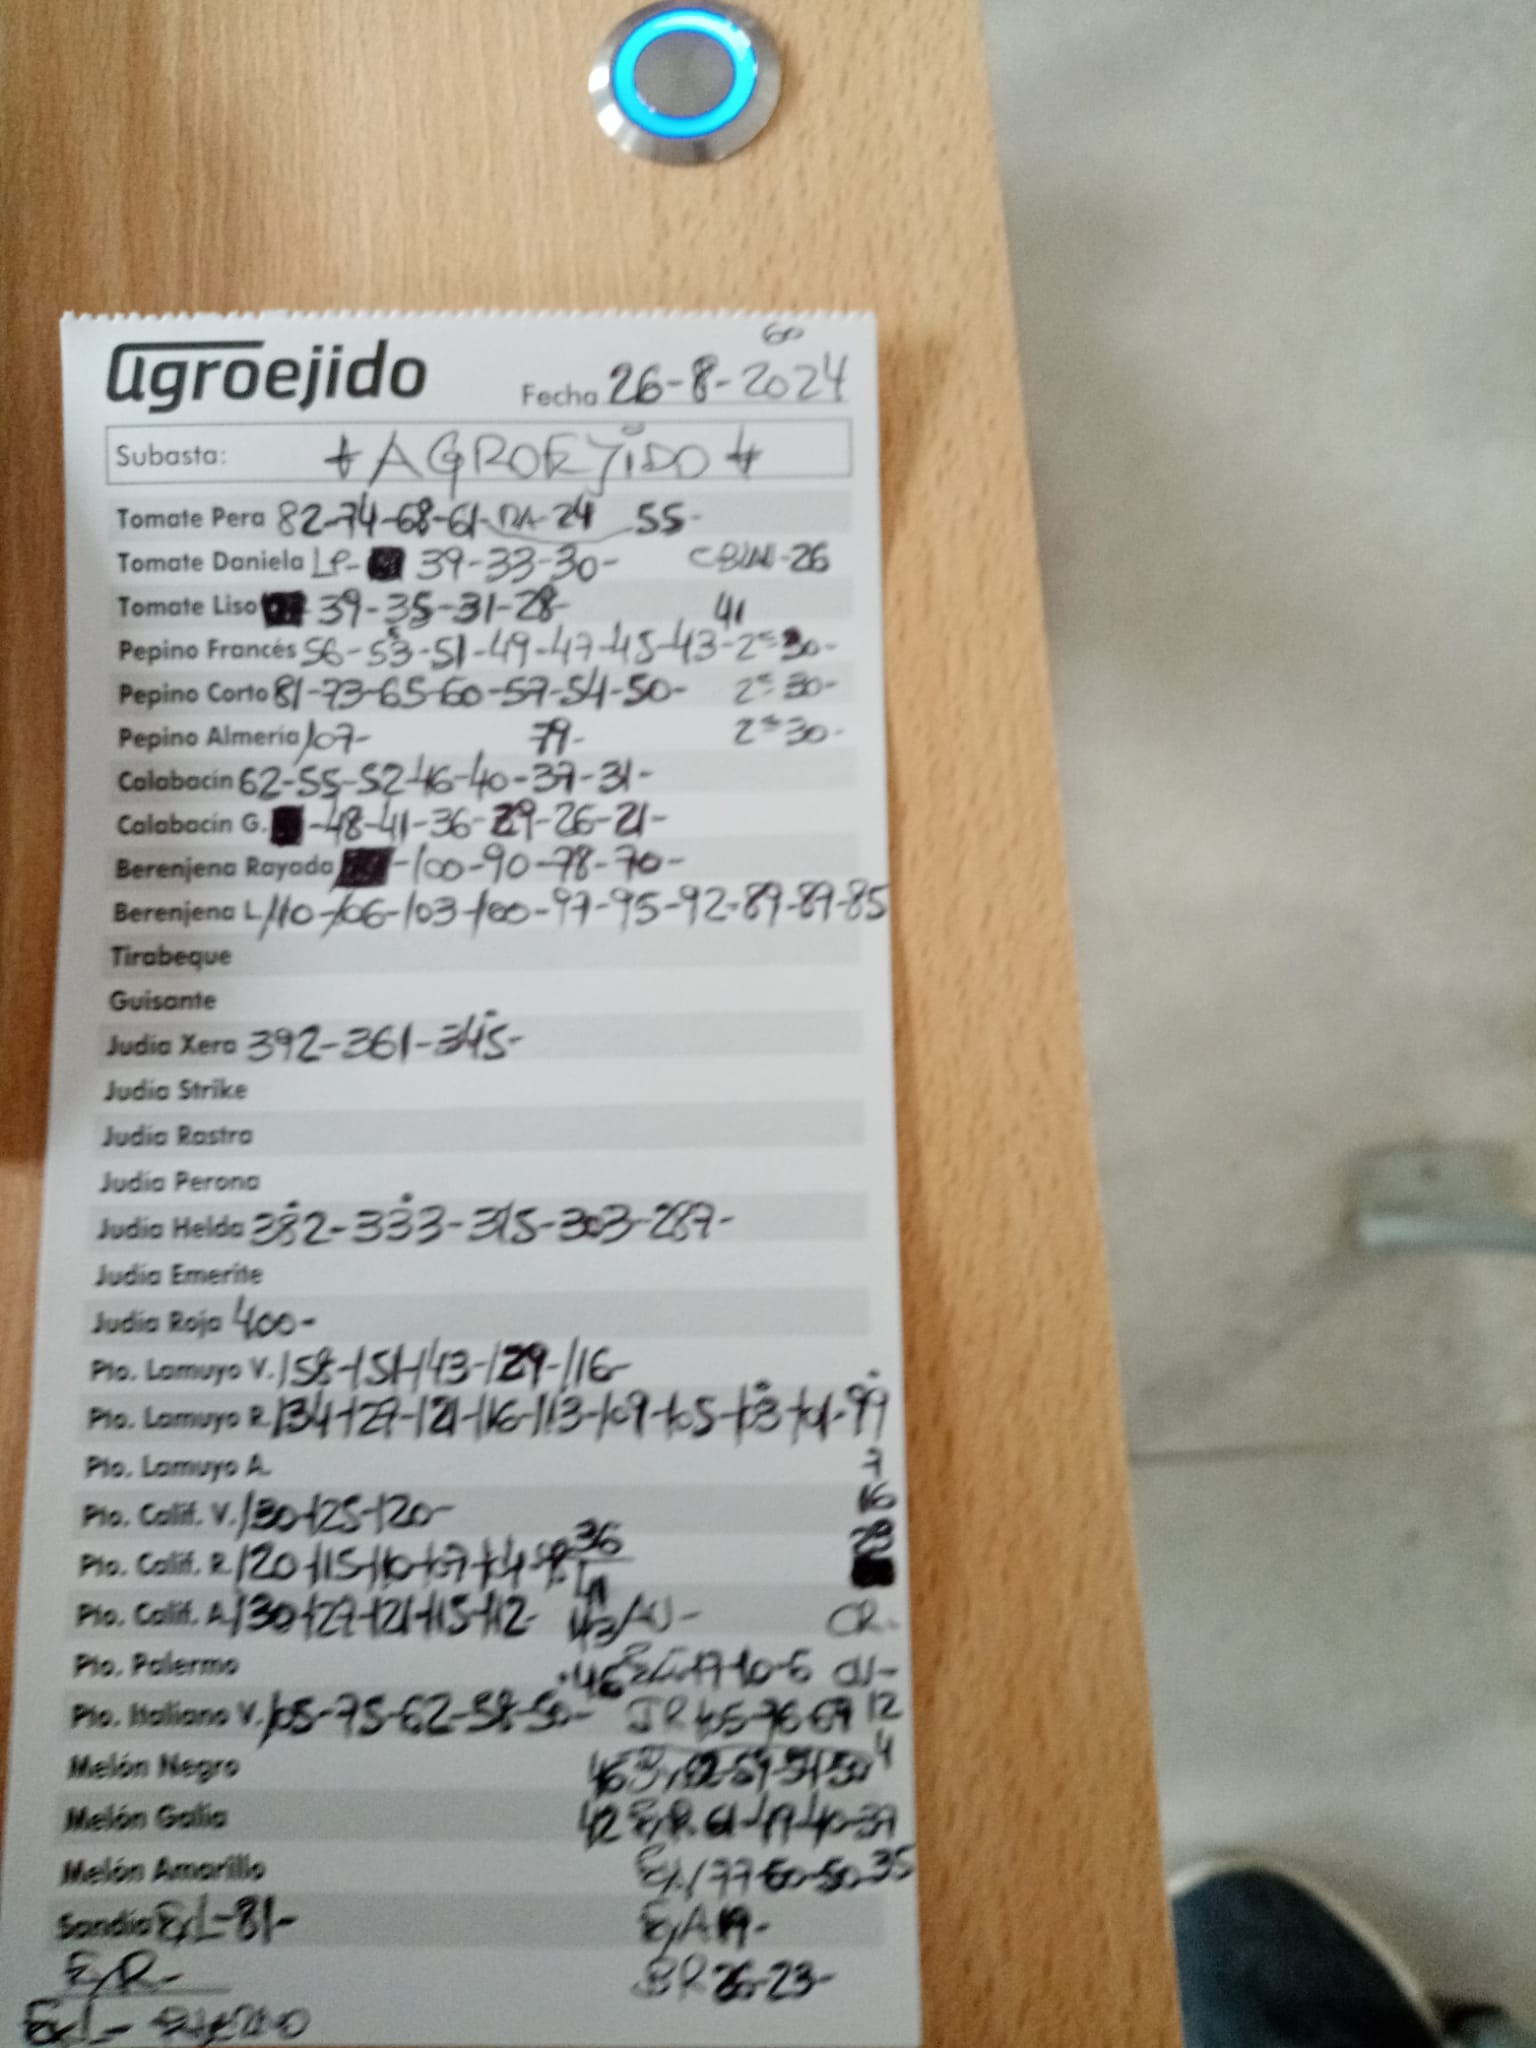 60
agroejido Fecha 26-8-2024
Subasta: AGROEJIDO
Tomate Pera 82-74-68-61- RA-24 55-
Tomate Daniela LP- 39-33-30- 26
Tomate Liso 39-35-31-28- 41
Pepino Francés 56-53-51-49-47-45-43-2ª 30-
Pepino Corto 81-73-65-60-57-54-50- 2ª 30-
Pepino Almería 107- 79- 2ª 30-
Calabacín 62-55-52-46-40-37-31-
Calabacín G. -48-41-36-29-26-21-
Berenjena Rayada -100-90-78-70-
Berenjena L. 110-106-103-100-97-95-92-89-89-85
Tirabeque
Guisante
Judía Xera 392-361-345-
Judía Strike
Judía Rastra
Judía Perona
Judía Helda 382-333-315-303-287-
Judía Emerite
Judía Roja 400-
Pto. Lamuyo V. 158-151-143-129-116-
Pto. Lamuyo R. 134-127-121-116-113-109-105-103-101-99
Pto. Lamuyo A. 7
Pto. Calif. V. 130-125-120- 16
Pto. Calif. R. 120-115-110-107-104 36 28
Pto. Calif. A. 130-127-121-115-112- 43/ CR-
Pto. Palermo 46 17-10-6
Pto. Italiano V. 105-75-62-58-50- JR 105-76-69 12
Melón Negro 46 59-54-50 4
Melón Galia 42 61-49-40-39
Melón Amarillo 77-60-50-35
Sandía 81- 19-
BR 26-23-